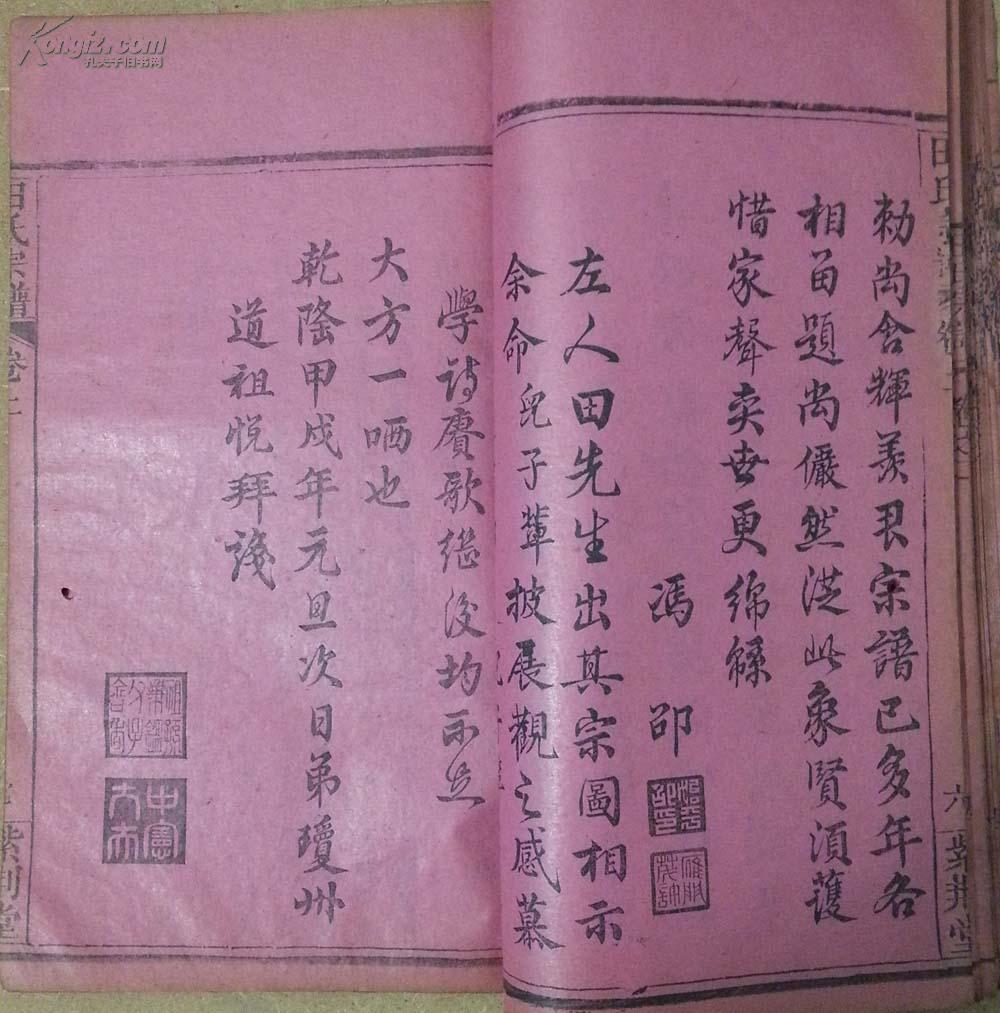 勅尚含輝羡君宗譜已多年各
相畄題尚儼然從此象賢須護
惜家聲奕世更綿緜
馮 邵
左人田先生出其宗圖相示
余命兒子輩披展觀之感慕
學詩賡歌繼後均不足
大方一哂也
乾隆甲戍年元旦次日弟瓊州
道祖悅拜識
中憲大夫
田氏宗譜
卷二
紫荊堂
六
紫荊堂
Kongfz.com
孔夫子旧书网